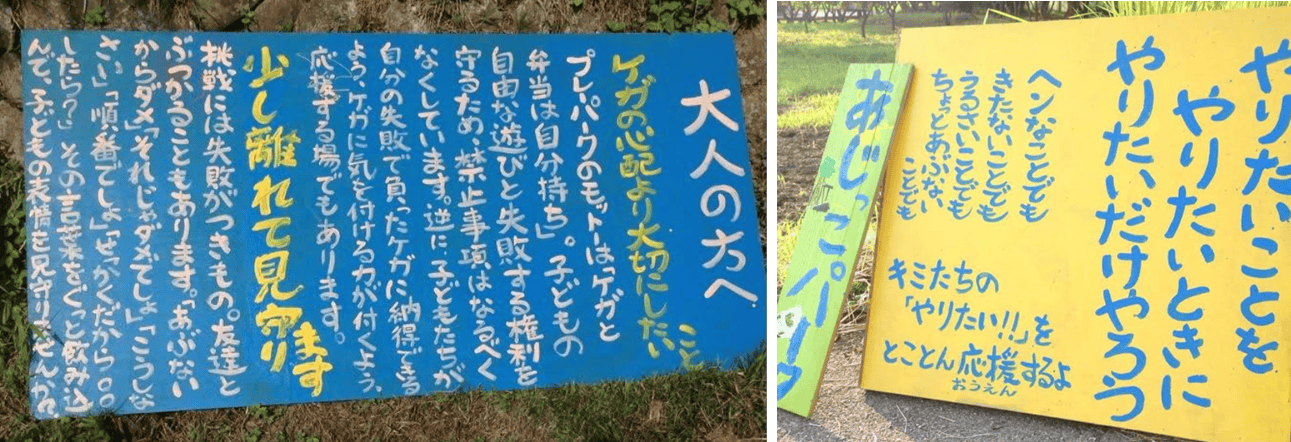 大人の方へ
ケガの心配より大切にしたいこと
プレパークのモットーは「ケガと
弁当は自分持ち」。子どもの
自由な遊びと失敗する権利を
守るため、禁止事項はなるべく
なくしています。逆に子どもたちが
自分の失敗で負ったケガに納得できる
よう、ケガに気を付ける力が付くよう、
応援する場でもあります。
少し離れて見守ります
挑戦には失敗がつきもの。友達と
ぶつかることもあります。「あぶない
からダメ」「それじゃダメでしょ」「こうしな
さい」「順番でしょ」「せっかくだから。。。
したら?」その言葉をぐっと飲み込
んで、子どもの表情を見守りませんか。
あじっこパーク
やりたいことを
やりたいときに
やりたいだけやろう
ヘンなことでも
きたないことでも
うるさいことでも
ちょっとあぶない
ことでも
キミたちの
「やりたい!!」を
とことん応援するよ
おうえん